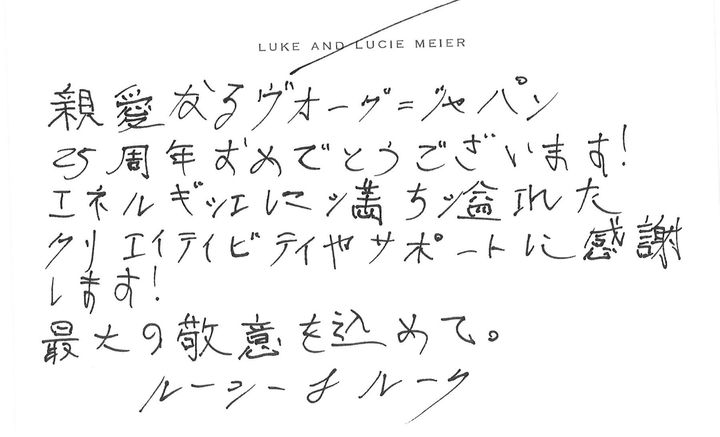 LUKE AND LUCIE MEIER
親愛なるヴォーグ=ジャパン
25周年おめでとうございます!
エネルギッェに満ち溢れた
クリエイティビティやサポートに感謝
します!
最大の敬意を込めて。
ルーシーよルーク